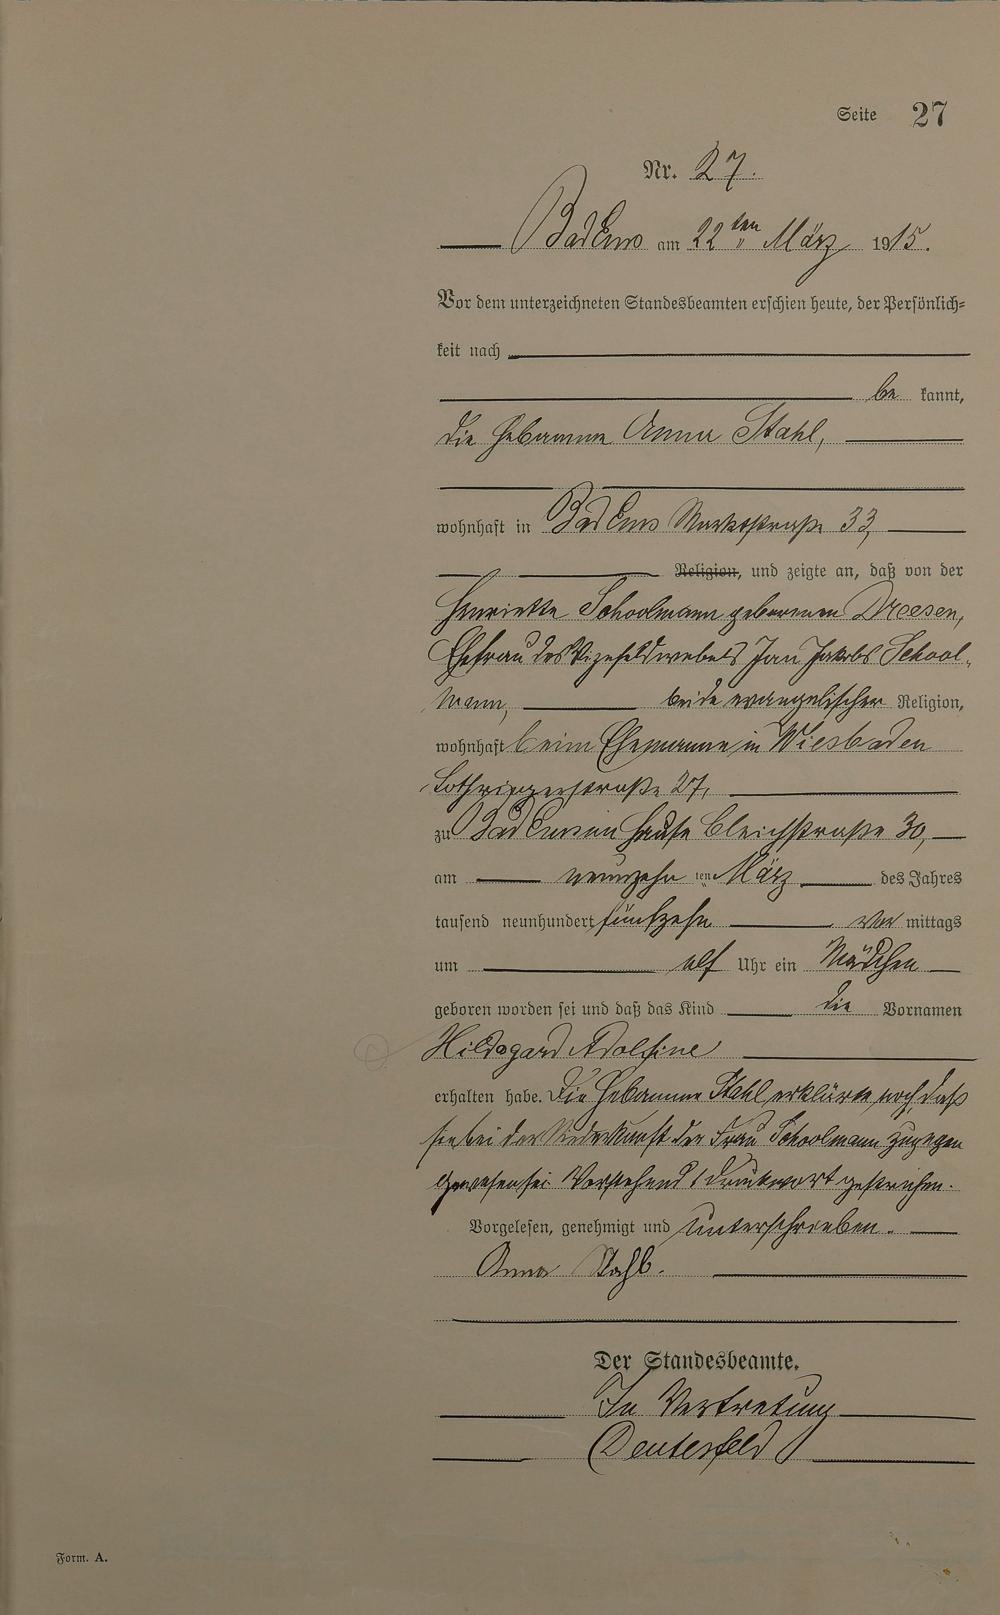 Seite 27
Nr. 27.
Bad Ems am 22ten März 1915.
Vor dem unterzeichneten Standesbeamten erschien heute, der Persönlich-
keit nach
be kannt,
die Hebamme Anna Stahl,
wohnhaft in Bad Ems Marktstraße 33,
Religion, und zeigte an, daß von der
Henriette Schoolmann geborenen Dreesen,
Ehefrau des Vizefeldwebels Jan Jakobs School-
mann, beide evangelischer Religion,
wohnhaft beim Ehemanne in Wiesbaden
Lothringerstraße 27,
zu Bad Ems im Hause Bleichstraße 30,
am neunzehn ten März des Jahres
tausend neunhundert fünfzehn vor mittags
um elf Uhr ein Mädchen
geboren worden sei und daß das Kind die Vornamen
Hildegard Adolfine
erhalten habe. Die Hebamme Stahl erklärte noch, daß
sie bei der Niederkunft der Frau Schoolmann zugegen
gewesen sei. Vorstehend 1 Druckwort gestrichen.
Vorgelesen, genehmigt und unterschrieben.
Anna Stahl.
Der Standesbeamte.
In Vertretung
Form. A.